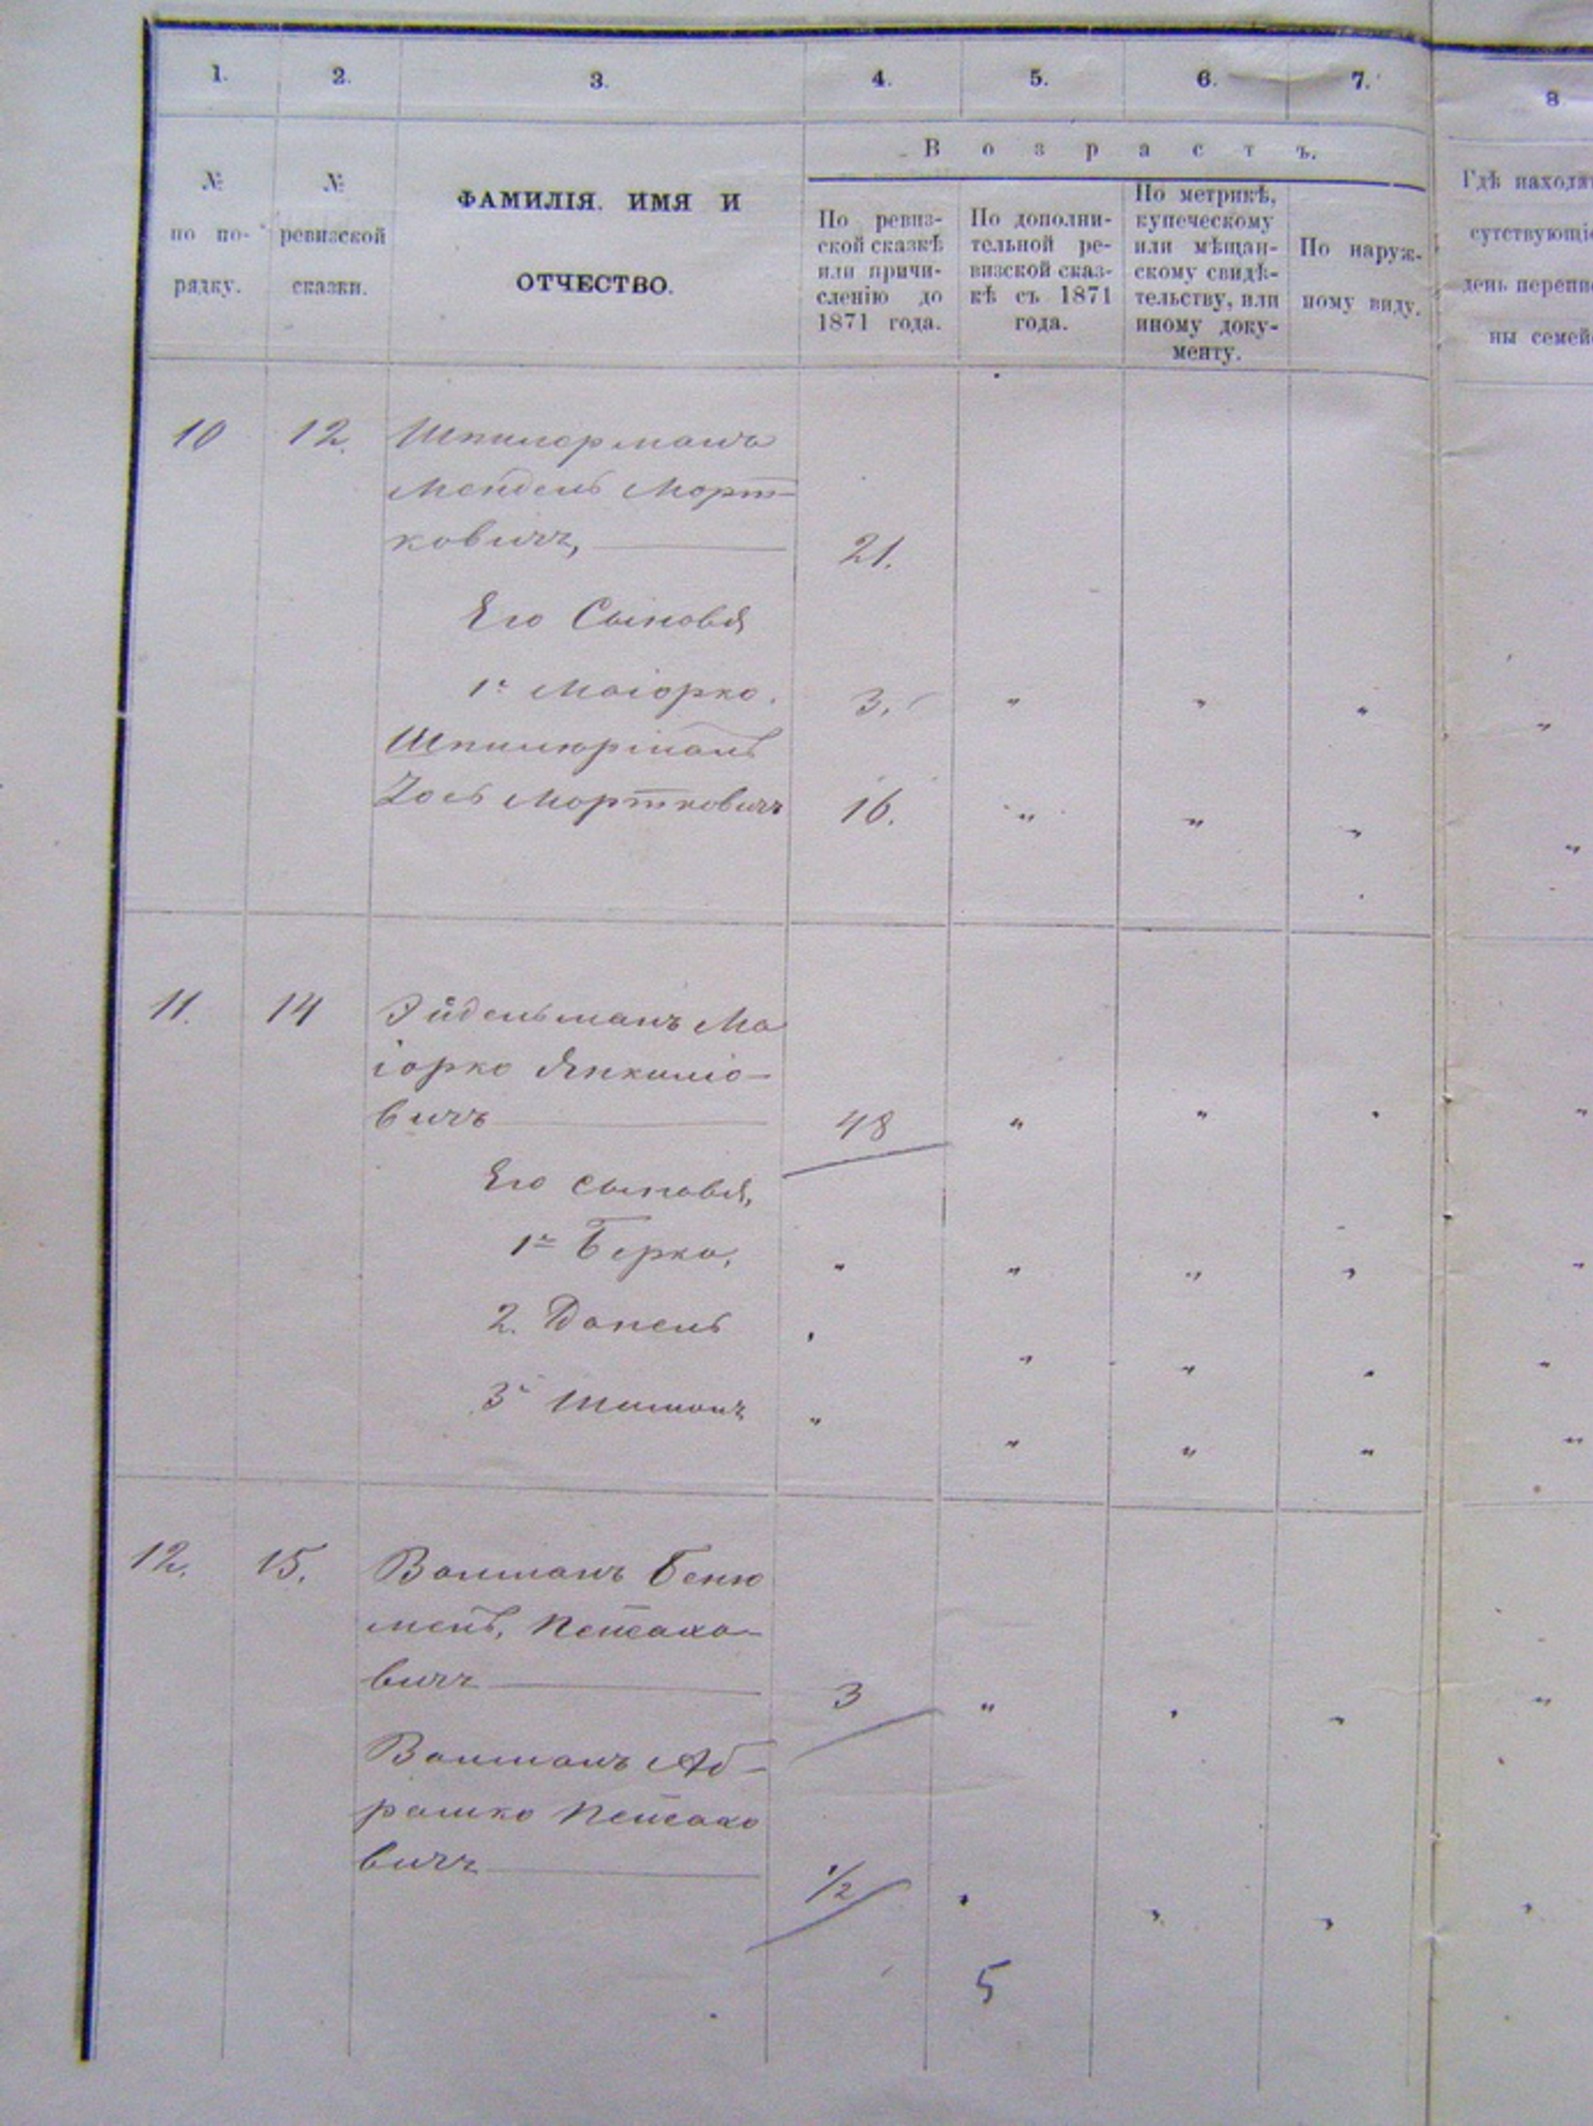 1. 2. 3. 4. 5. 6. 7. 8
№ по по- рядку.
№ ревизской сказки.
ФАМИЛІЯ. ИМЯ И
ОТЧЕСТВО.
Возрастъ.
По ревиз-
ской сказкѣ
или причи-
сленію до
1871 года.
По дополни-
тельной ре-
визской сказ-
кѣ съ 1871
года.
По метрикѣ,
купеческому
или мѣщан-
скому свидѣ-
тельству, или
иному доку-
менту.
По наруж-
ному виду.
Гдѣ находят
сутствующіе
день перепи
ны семей
10 12. Шпилерманъ
Мендель Морт-
ковичъ, 21.
Его Сыновья
1й Маіорко. 3. " " " "
Шпилюрманъ
Зось Мортковичъ 16. " " " "
11. 14 Эйдельманъ Ма
іорко Янкиліо-
вичъ 48 " " " "
Его сыновья,
1й Берко, " " " " "
2. Данель " " " " "
3й Шимонъ " " " " "
12. 15. Валманъ Беню
менъ, Петахо-
вичъ 3 " " " "
Валманъ Аб-
рамко Петахо
вичъ 1/2 " " " "
5